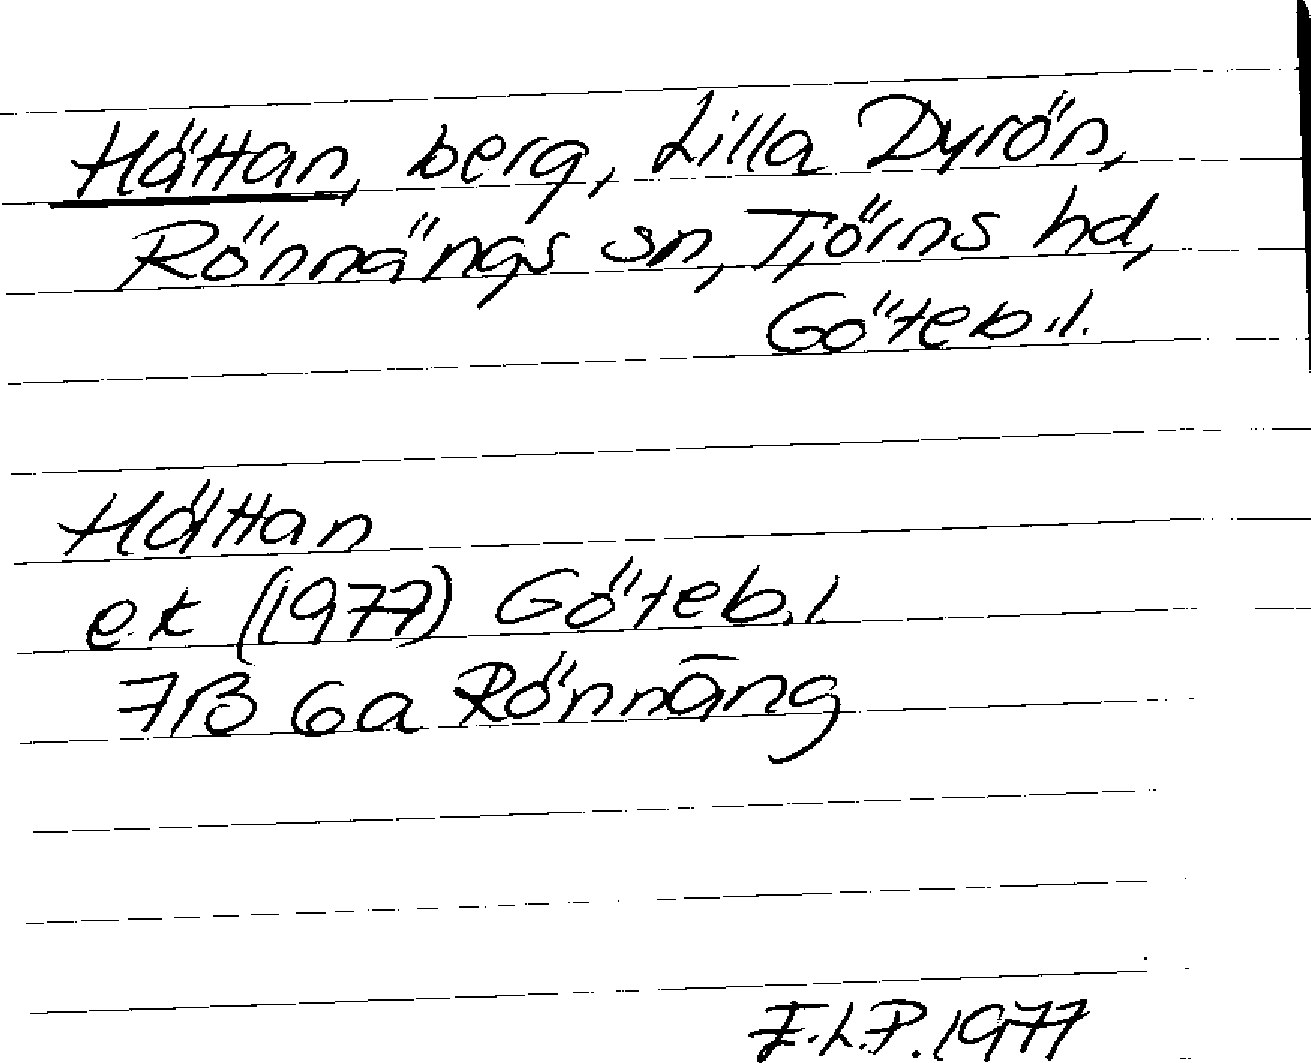 Hättan, berg, Lilla Dyrön,
Rönnängs sn, Tjörns hd,
Göteb.l.
Hättan
e.k (1977) Göteb.l.
7B 6a Rönnäng
E.L.P. 1977